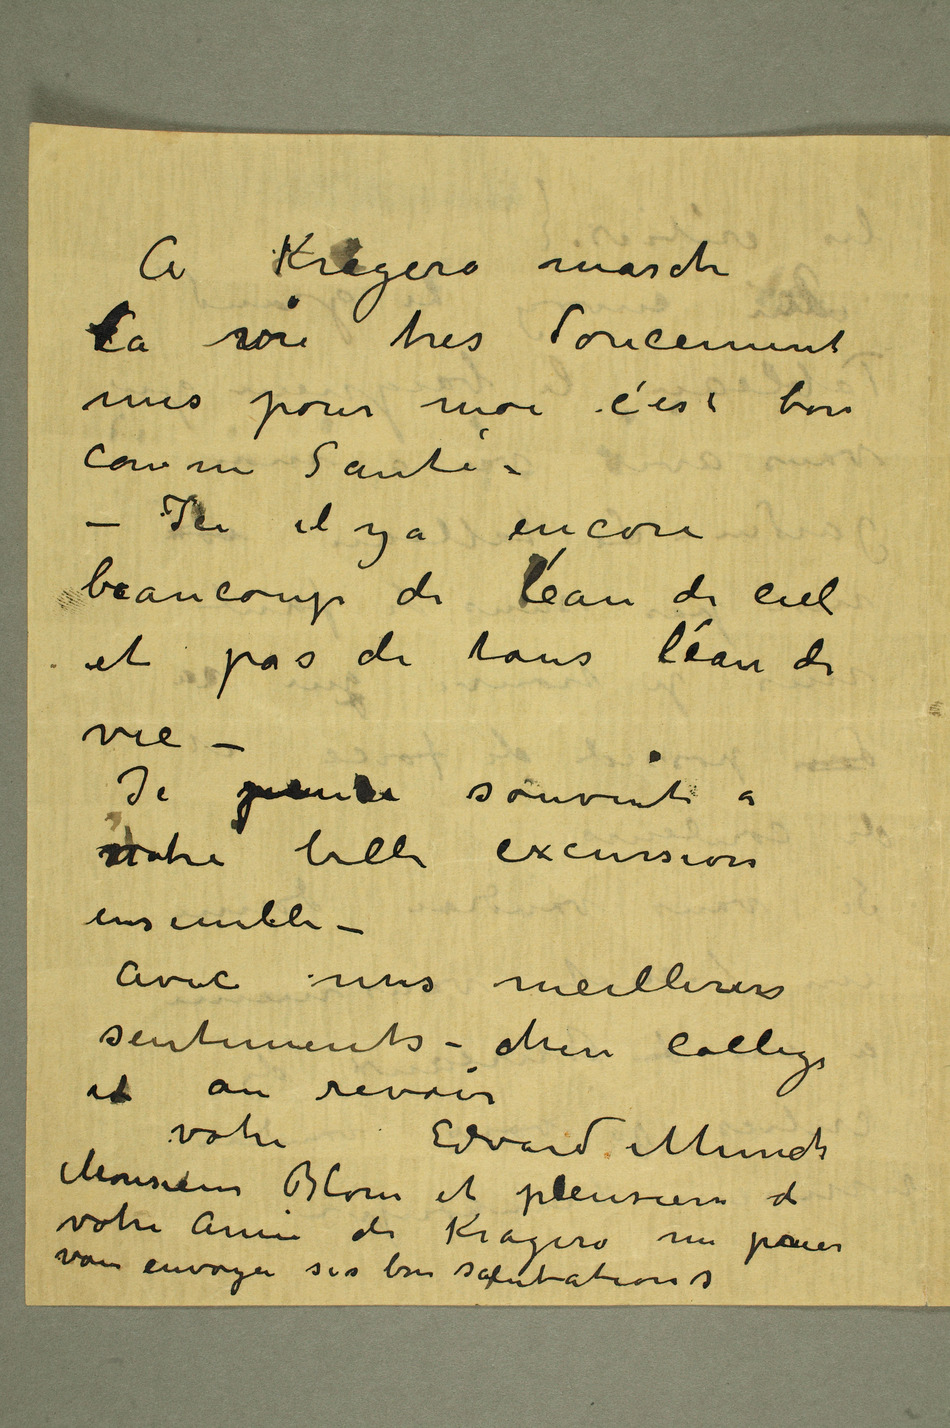 A Kragerø masch
la vie tres doucement
mes pour moi c'est bon
comme Santé –
– Ici il ya encore
beaucoup de l'eau de ciel
et pas de tous l'éau de
vie –
Je pense souvent a
notre belle excursion
ensemble –
Avec mes meilleurs
sentiments – cher collegе
et au revoir
votre Edvard Munch
Monsieur Blom et pleusieur d
votre Amie de Kragerø me prier
vous envoyer ses bon salutations